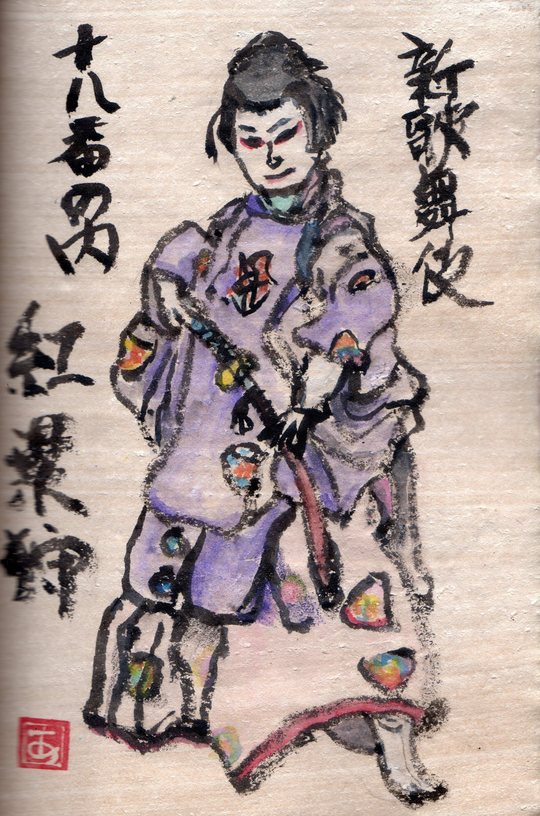 新歌舞伎
十八番の内
紅葉狩